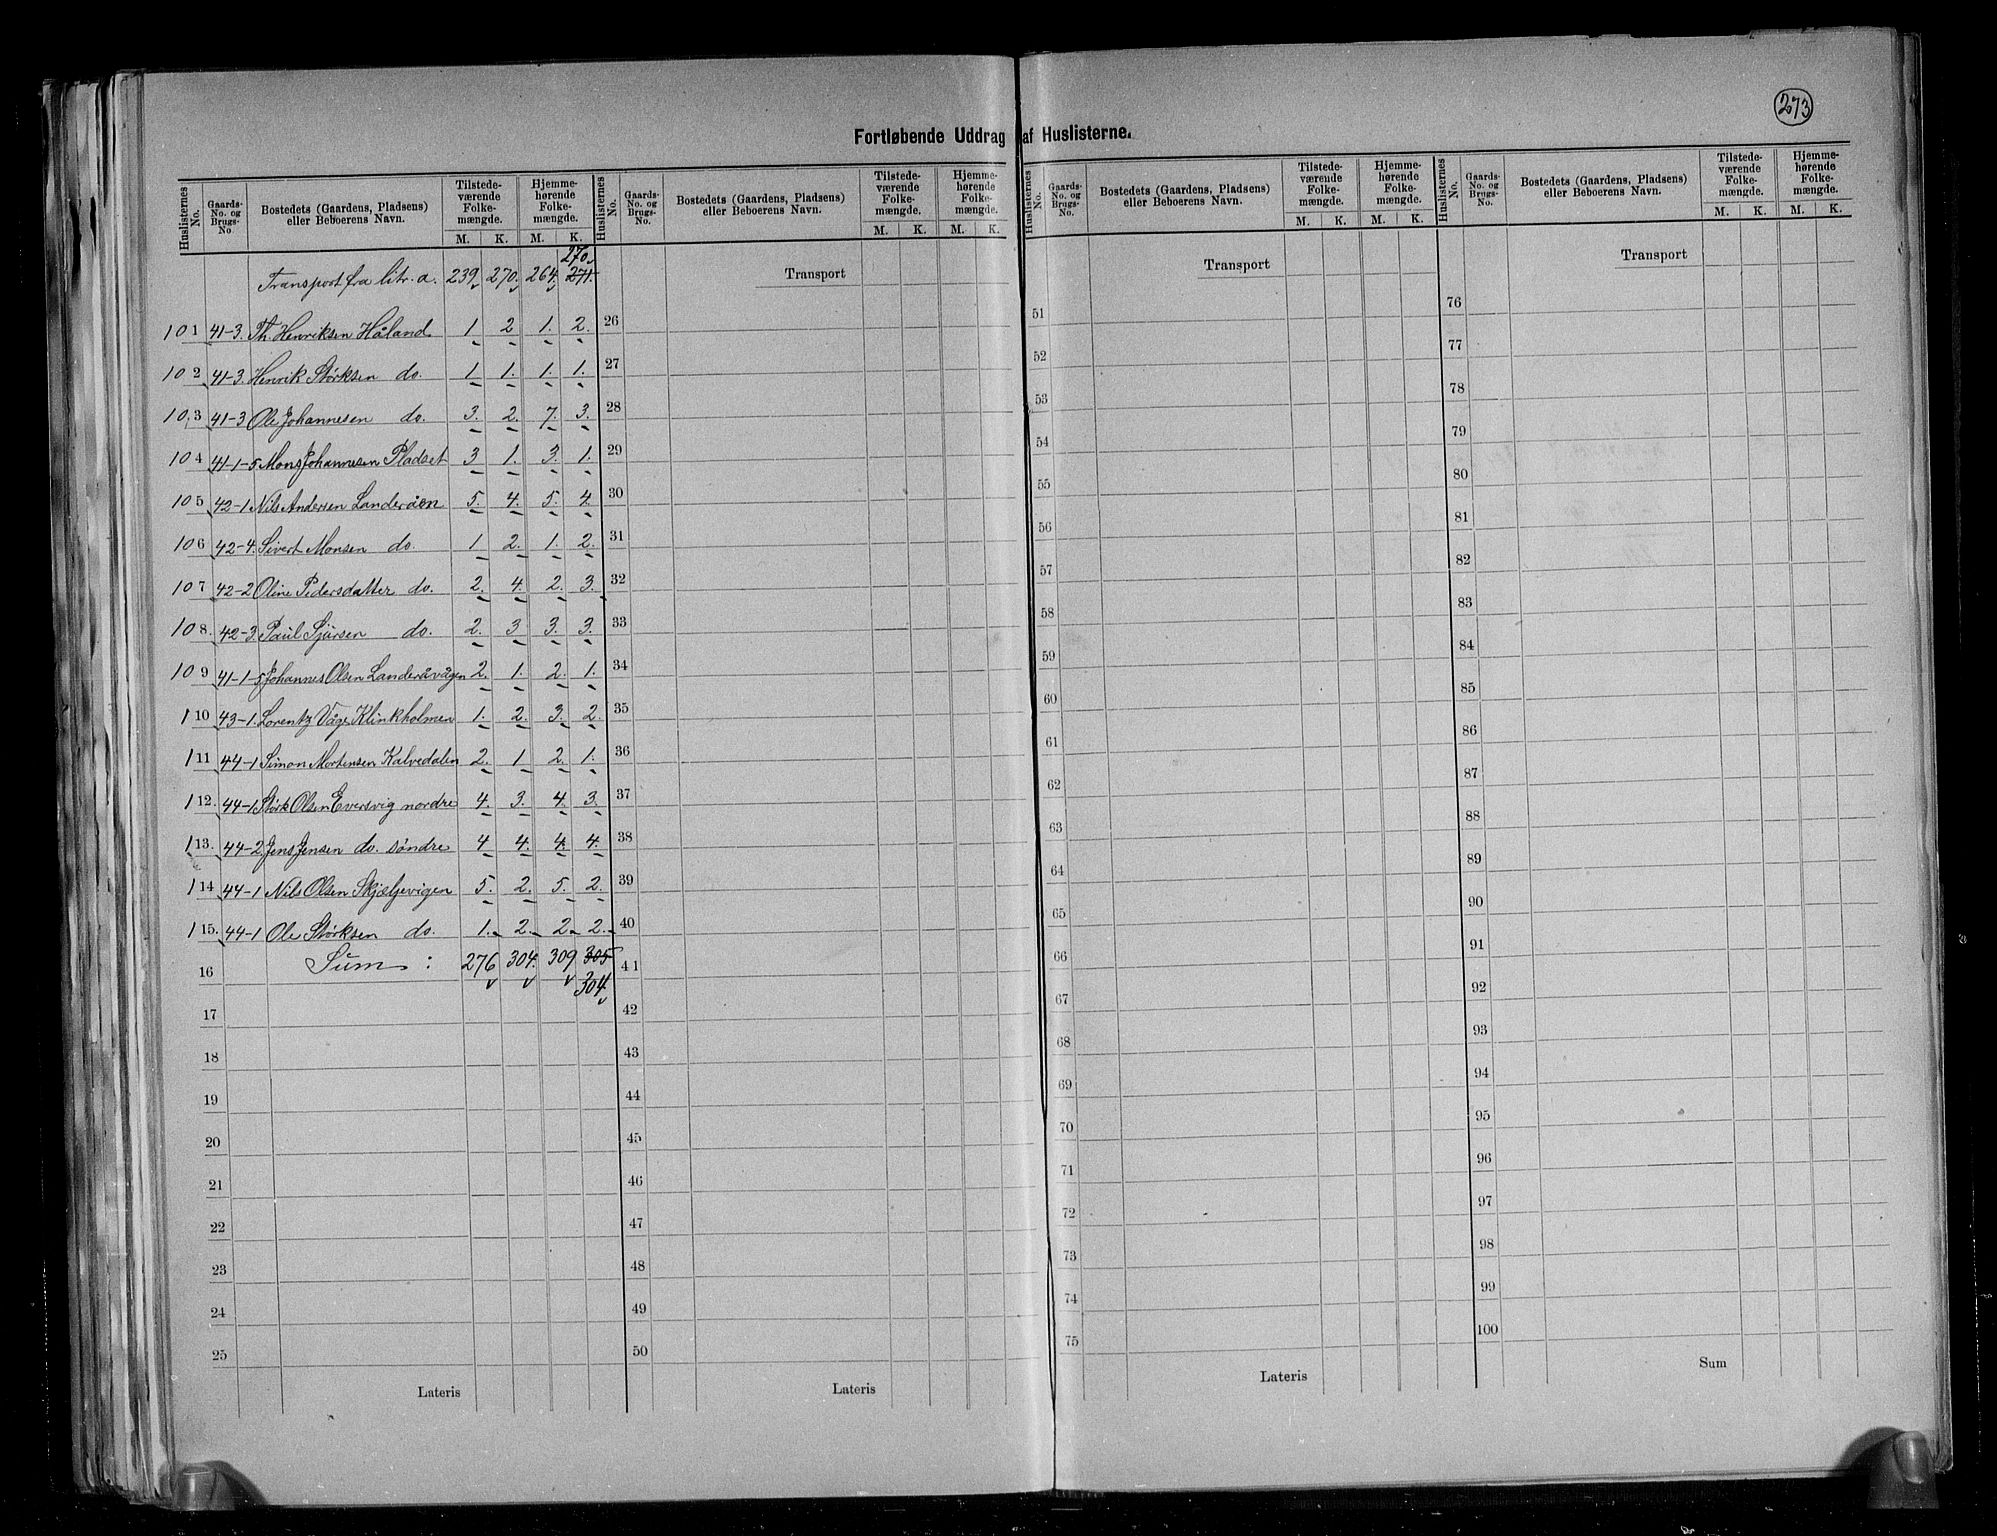 273
Fortløbende Uddrag af Huslisterne.
Huslisternes No. Gaards-No. og Brugs-No. Bostedets (Gaardens, Pladsens) eller Beboerens Navn. Tilstede-værende Folke-mængde. M. K. Hjemme-hørende Folke-mængde. M. K.
Huslisternes No. Gaards-No. og Brugs-No. Bostedets (Gaardens, Pladsens) eller Beboerens Navn. Tilstede-værende Folke-mængde. M. K. Hjemme-hørende Folke-mængde. M. K.
Huslisternes No. Gaards-No. og Brugs-No. Bostedets (Gaardens, Pladsens) eller Beboerens Navn. Tilstede-værende Folke-mængde. M. K. Hjemme-hørende Folke-mængde. M. K.
Huslisternes No. Gaards-No. og Brugs-No. Bostedets (Gaardens, Pladsens) eller Beboerens Navn. Tilstede-værende Folke-mængde. M. K. Hjemme-hørende Folke-mængde. M. K.
270.
Transport fra litr. a. 239 270. 264. 271.
101 41-3. Th. Henriksen Håland 1 2 1. 2.
102 41-3. Henrik Størksen do. 1 1. 1. 1.
103 41-3 Ole Johannesen do. 3. 2. 7. 3.
104 41-1-5 Mons Johannesen Pladset 3 1. 3. 1.
105 42-1 Nils Andersen Landeråen 5. 4. 5. 4.
106 42-4. Sivert Monsen do. 1. 2. 1. 2.
107 42-2 Oline Pedersdatter do. 2. 4. 2. 3.
108. 42-3. Paul Sjursen do. 2. 3 3. 3.
109 41-1-5 Johannes Olsen Landeråvågen 2. 1. 2. 1.
110 43-1. Lorentz Våge Klinkholmen 1. 2. 3. 2.
111 44-1 Simon Mortensen Kalvedalen 2. 1 2. 1.
112. 44-1 Størk Olsen Eversvig nordre 4. 3. 4. 3.
113. 44-2 Jens Jensen do. søndre 4 4. 4. 4.
114 44-1 Nils Olsen Skjæljevigen 5. 2. 5. 2.
115. 44-1 Ole Størksen do. 1. 2. 2. 2.
16 Sum : 276 304. 309 305
304
17
18
19
20
21
22
23
24
25
Lateris
Transport
26
27
28
29
30
31
32
33
34
35
36
37
38
39
40
41
42
43
44
45
46
47
48
49
50
Lateris
Transport
51
52
53
54
55
56
57
58
59
60
61
62
63
64
65
66
67
68
69
70
71
72
73
74
75
Lateris
Transport
76
77
78
79
80
81
82
83
84
85
86
87
88
89
90
91
92
93
94
95
96
97
98
99
100
Sum